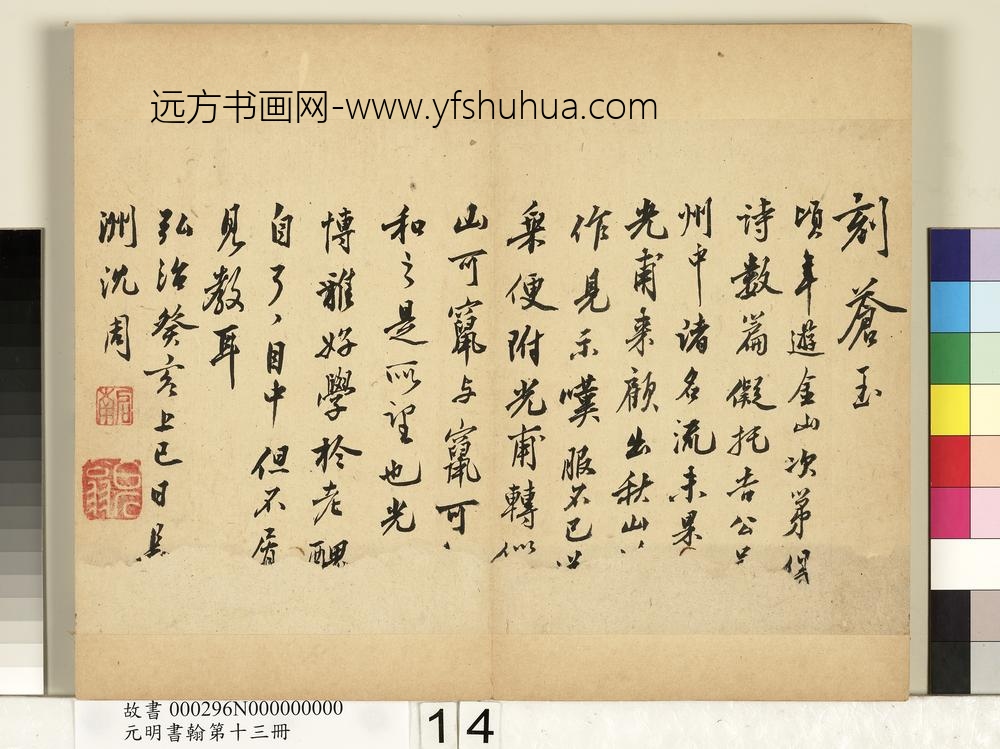 远方书画网-www.yfshuhua.com
刻蒼玉
頃年遊金山次第得
詩數篇儗托吉公呈
州中諸名流未果
光甫来顧出秋山
作見示嘆服不已
乗便附光甫轉似
山可竄与竄可
和之是所望也光
博雅好學於老醜
自了々目中但不屑
見教耳
弘治癸亥上巳日長
洲沈周
啟南
故書 000296N000000000
元明書翰第十三冊
14